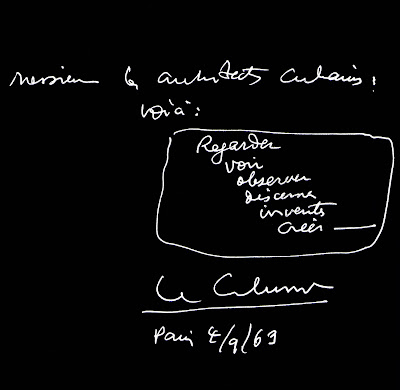 Messieurs les architects Cubains :
voilà :
Regarder
voir
observer
discerner
inventer
créer
Le Corbusier
Paris 4/9/63